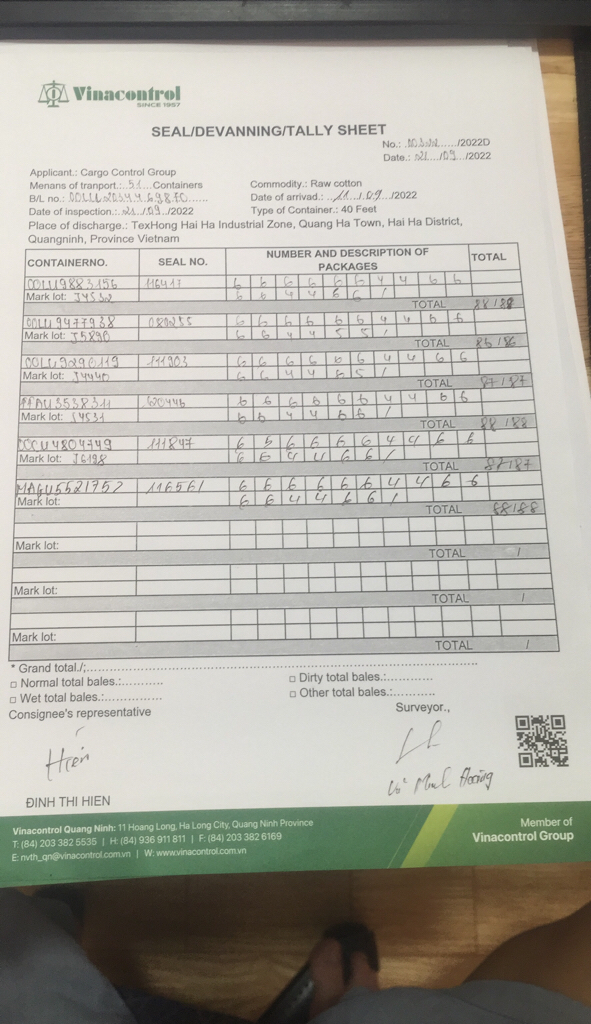 Vinacontrol
SINCE 1957
SEAL/DEVANNING/TALLY SHEET
No.: /2022D
Date.: 21/09/2022
Applicant.: Cargo Control Group
Menans of tranport.: 51 Containers
Commodity.: Raw cotton
B/L no.:
Date of arrivad.: 11/09/2022
Date of inspection.: 21/09/2022
Type of Container.: 40 Feet
Place of discharge.: TexHong Hai Ha Industrial Zone, Quang Ha Town, Hai Ha District,
Quangninh, Province Vietnam
CONTAINERNO. SEAL NO. NUMBER AND DESCRIPTION OF PACKAGES TOTAL
116417 6 6 6 6 6 6 4 4 6 6
Mark lot: 6 6 4 4 6 6 /
TOTAL 88/88
6 6 6 6 6 6 4 4 6 6
Mark lot: J5890 6 6 4 4 5 5 /
TOTAL 86/86
111903 6 6 6 6 6 6 4 6 6
Mark lot: J4440 6 6 4 4 6 5 /
TOTAL 87/87
6 6 6 6 6 6 4 4 6 6
Mark lot: J4531 6 6 4 4 6 6 /
TOTAL 88/88
111847 6 5 6 6 6 6 4 4 6 6
Mark lot: J6198 6 6 4 4 6 6 /
TOTAL 87/87
MAGU5521757 116561 6 6 6 6 6 6 4 4 6 6
Mark lot: 6 6 4 4 6 6 /
TOTAL 88/88
Mark lot:
TOTAL /
Mark lot:
TOTAL /
Mark lot:
TOTAL /
* Grand total./;
□ Normal total bales.:
□ Dirty total bales.:
□ Wet total bales.:
□ Other total bales.:
Consignee's representative
Surveyor.,
Hien
ĐINH THI HIEN
Vinacontrol Quang Ninh: 11 Hoang Long, Ha Long City, Quang Ninh Province
T: (84) 203 382 5535 | H: (84) 936 911 811 | F: (84) 203 382 6169
E: nvth_qn@vinacontrol.com.vn | W: www.vinacontrol.com.vn
Member of
Vinacontrol Group